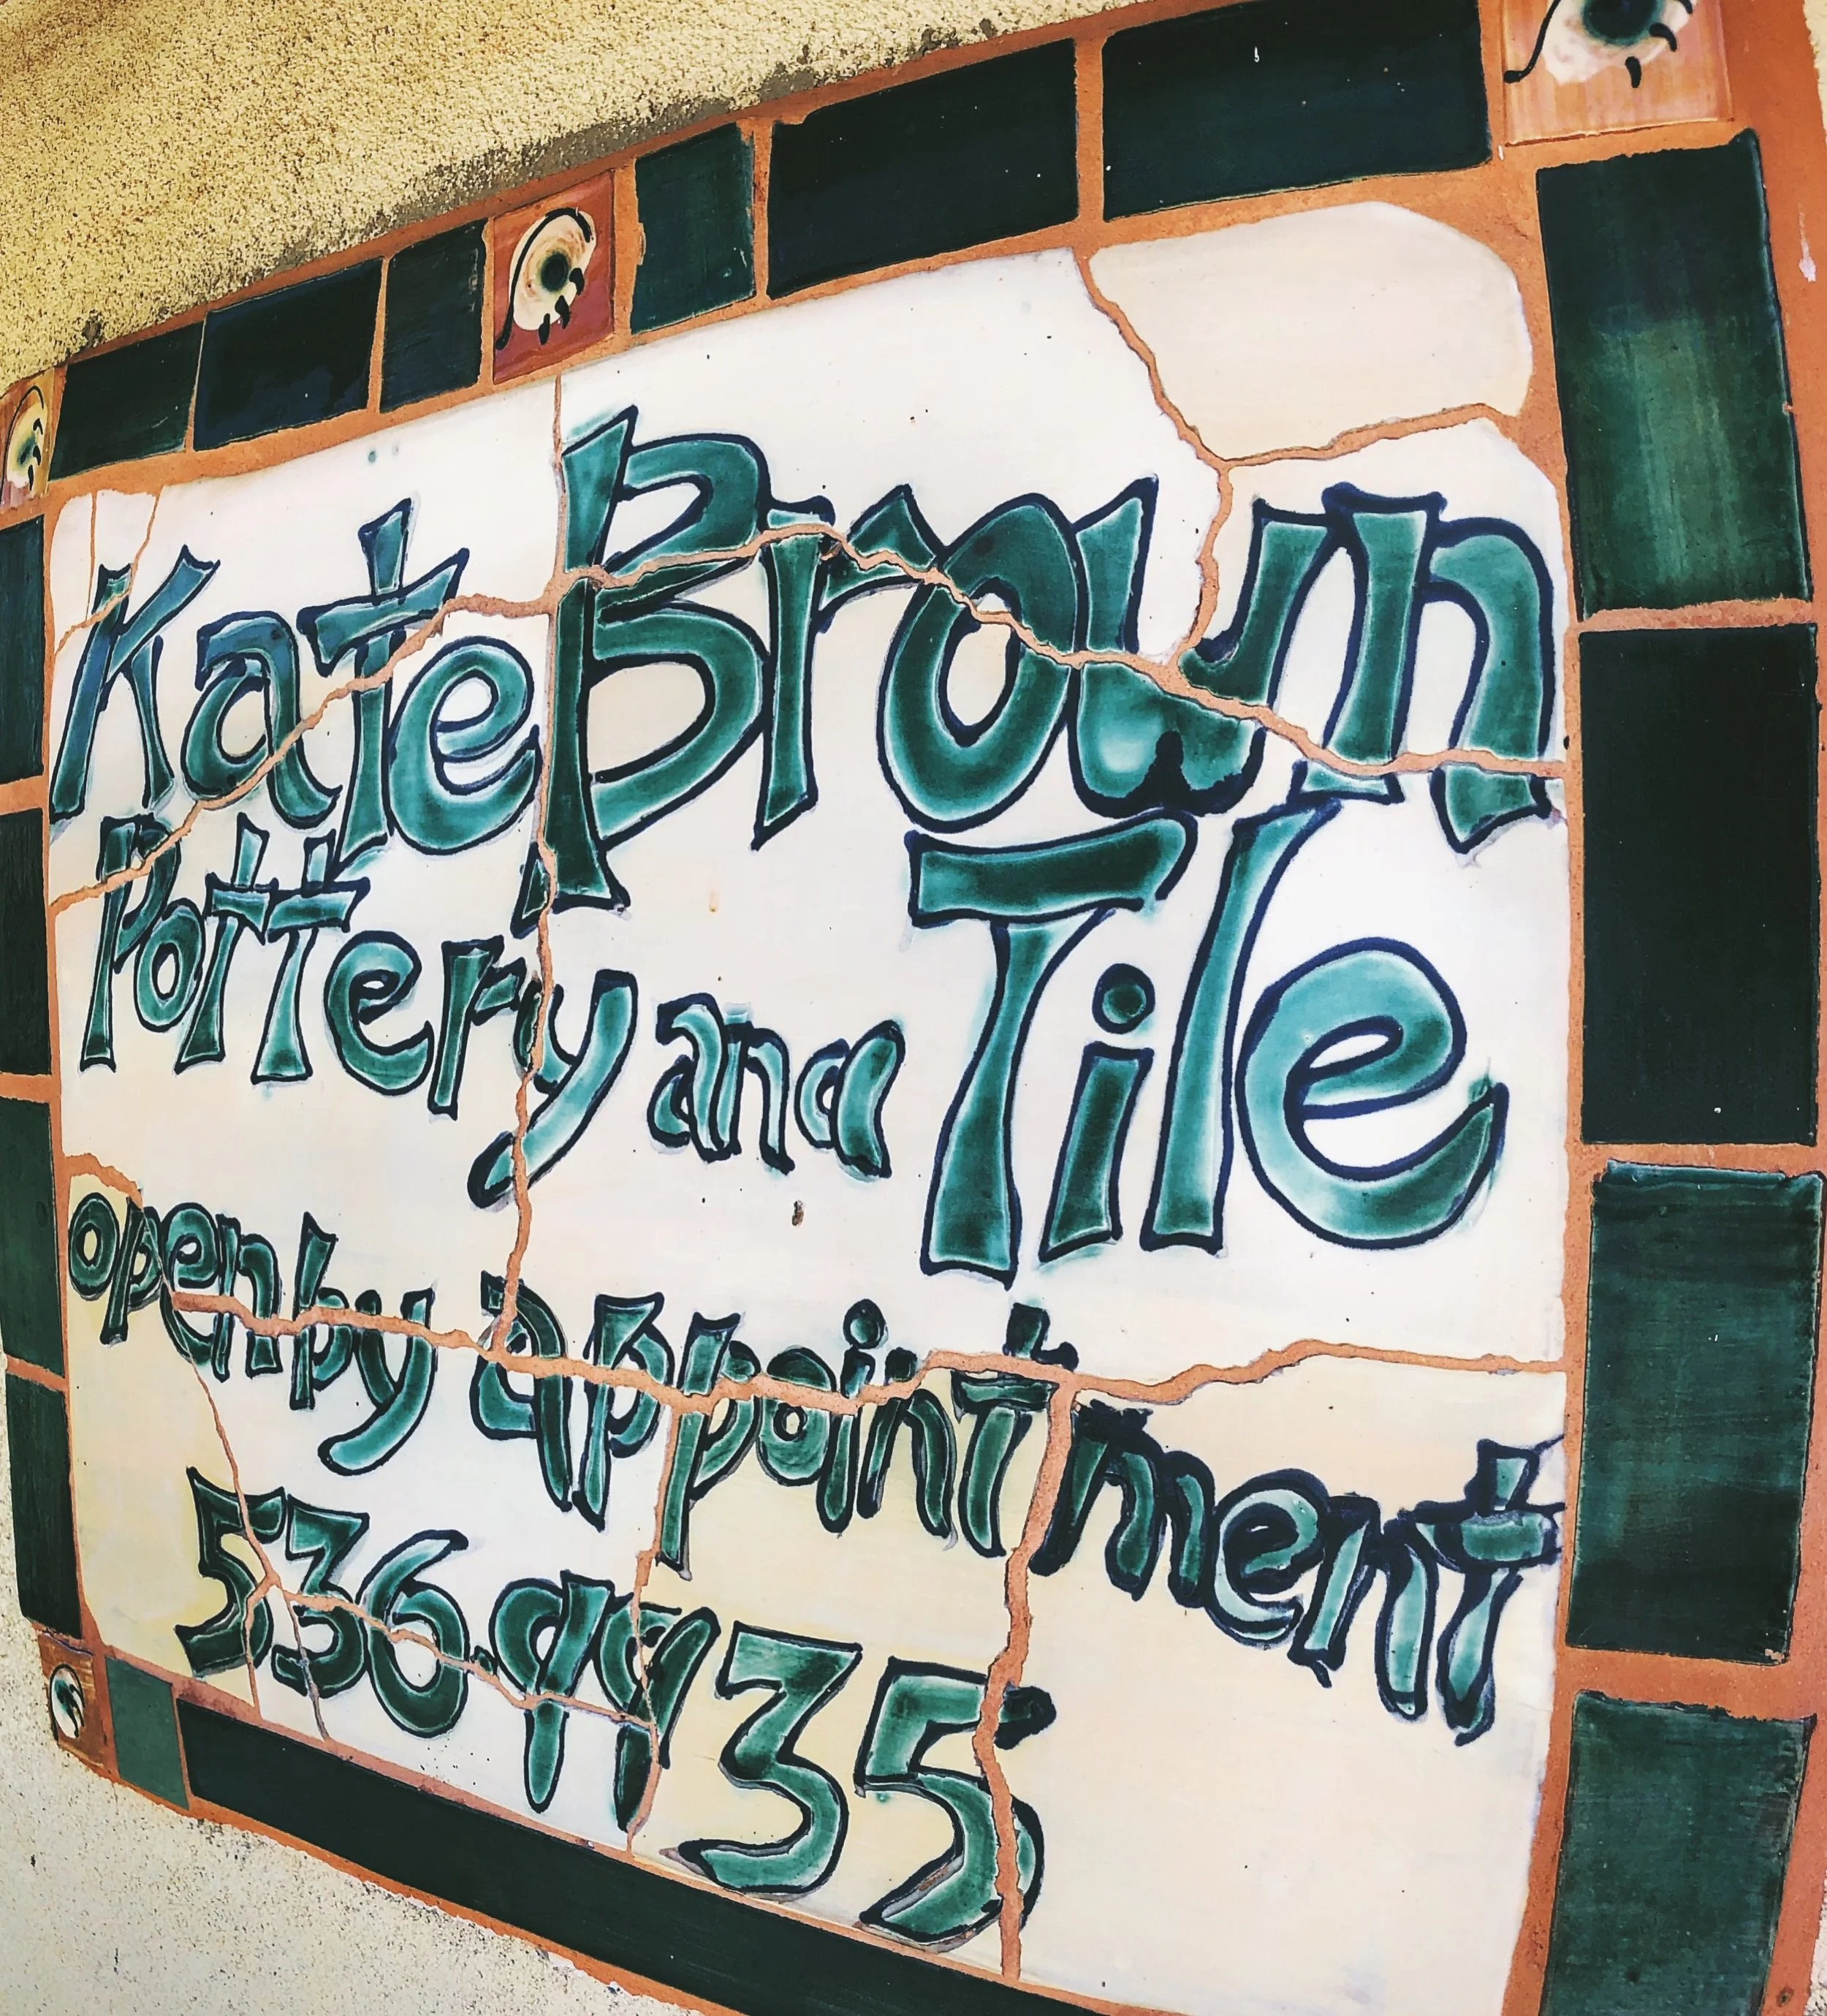 Kate Brown
Pottery and Tile
open by appointment
536.9935